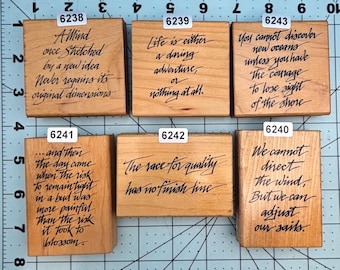 6238
A Mind
once Stretched
by a new idea
Never regains its
original dimensions
6239
Life is either
a daring
adventure,
or
nothing at all.
6243
You cannot discover
new oceans
unless you have
the courage
to lose sight
of the shore
6241
...and then
the day came
when the risk
to remain tight
in a bud was
more painful
than the risk
it took to
blossom.
6242
The race for quality
has no finish line
6240
We cannot
direct
the wind,
But we can
adjust
our sails.
1
2
3
4
5
6
7
8